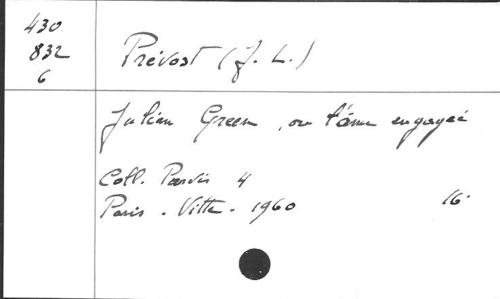 430
832
6
Prévost (J. L.)
Julien Green, ou l'âme engagée
Coll. Parvis 4
Paris - Vitte - 1960 16°